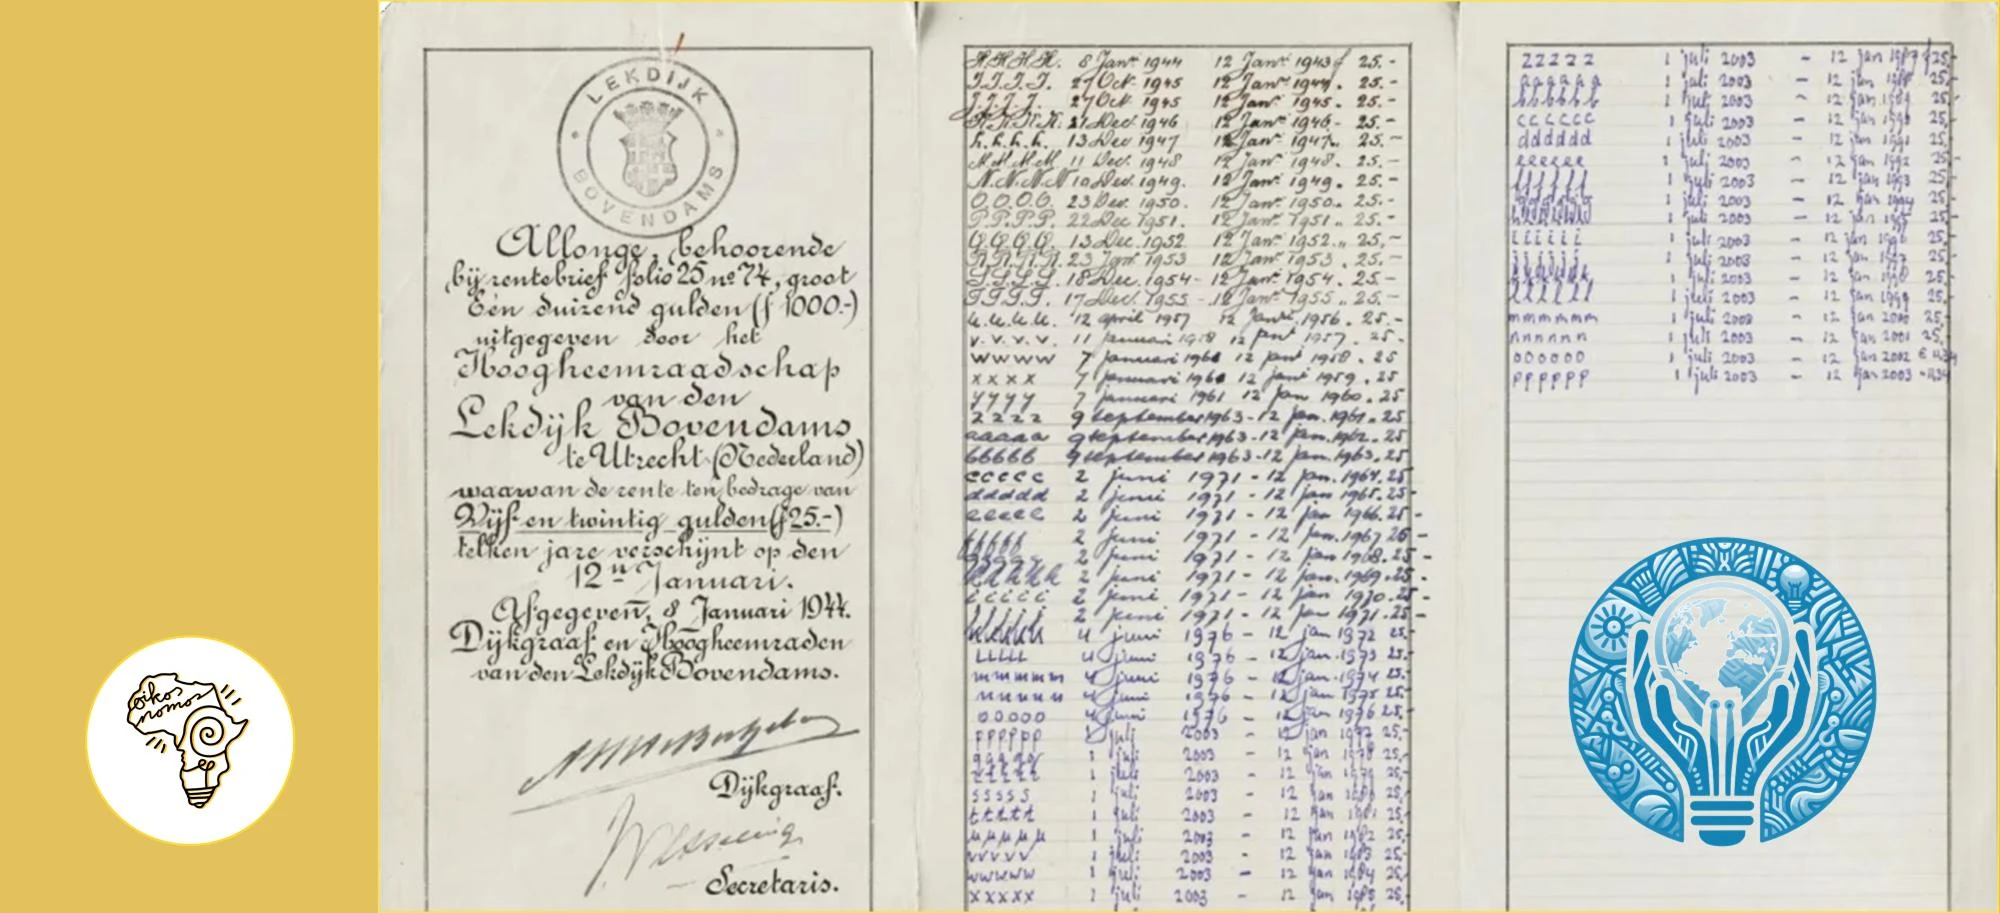 oiko
nomo
LEKDIJK
BOVENDAMS
Allonge, behoorende
bij rentebrief folio 25 no 74, groot
Een duizend gulden (f 1000.-)
uitgegeven door het
Hoogheemraadschap
van den
Lekdijk Bovendams
te Utrecht (Nederland)
waarvan de rente ten bedrage van
Vijf en twintig gulden (f 25.-)
telken jare verschijnt op den
12n Januari.
Afgegeven, 8 Januari 1944.
Dijkgraaf en Hoogheemraden
van den Lekdijk Bovendams.
Dijkgraaf.
Secretaris.
H.H.H.H. 8 Janr 1944 12 Janr 1943 f 25.-
I.I.I.I. 27 Oct. 1945 12 Janr 1944. 25.-
J.J.J.J. 27 Oct 1945 12 Janr 1945. 25.-
K.K.K.K. 21 Dec. 1946 12 Janr 1946. 25.-
L.L.L.L. 13 Dec 1947 12 Janr 1947. 25.-
M.M.M.M. 11 Dec. 1948 12 Janr 1948. 25.-
N.N.N.N. 10 Dec. 1949. 12 Janr 1949. 25.-
O.O.O.O. 23 Dec. 1950. 12 Janr 1950. 25.-
P.P.P.P. 22 Dec 1951. 12 Janr 1951. 25.-
Q.Q.Q.Q. 13 Dec. 1952 12 Janr 1952. 25.-
R.R.R.R. 23 Janr 1953 12 Janr 1953. 25.-
S.S.S.S. 18 Dec. 1954 - 12 Janr 1954. 25.-
T.T.T.T. 17 Dec 1955 - 12 Janr 1955. 25.-
u.u.u.u. 12 april 1957 12 Janr 1956. 25.-
v.v.v.v. 11 januari 1958 12 janr 1957. 25.-
wwww 7 januari 12 janr 1958. 25
xxxx 7 januari 12 janr 1959. 25
yyyy 7 januari 1961 12 jan 1960. 25
zzzz 9 september 1963 - 12 jan. 1961. 25
aaaaa 9 september 1963 - 12 jan. 1962. 25
bbbbb 9 september 1963 - 12 jan. 1963. 25
ccccc 2 juni 1971 - 12 jan. 1964. 25
ddddd 2 juni 1971 - 12 jan. 1965. 25-
eeeee 2 juni 1971 - 12 jan 1966. 25-
fffff 2 juni 1971 - 12 jan. 1967 25-
ggggg 2 juni 1971 - 12 jan 1968. 25-
hhhhh 2 juni 1971 - 12 jan. 1969. 25-
iiiii 2 juni 1971 - 12 jan 1970. 25-
jjjjj 2 juni 1971 - 12 jan 1971. 25-
kkkkk 4 juni 1976 - 12 jan 1972 25-
LLLLL 4 juni 1976 - 12 jan. 1973 25-
mmmmm 4 juni 1976 - 12 jan. 1974 25-
nnnnn 4 juni 1976 - 12 jan 1975 25-
ooooo 4 juni 1976 - 12 jan 1976 25-
ppppp 1 juli 2003 - 12 jan 1977 25,-
qqqqq 1 juli 2003 - 12 jan 1978 25,-
rrrrr 1 juli 2003 - 12 jan 1979 25,-
sssss 1 juli 2003 - 12 jan 1980 25,-
ttttt 1 juli 2003 - 12 jan 1981 25,-
uuuuu 1 juli 2003 - 12 jan 1982 25,-
vvvvv 1 juli 2003 - 12 jan 1983 25,-
wwwww 1 juli 2003 - 12 jan 1984 25,-
xxxxx 1 juli 2003 - 12 jan 1985 25,-
zzzzz 1 juli 2003 - 12 jan 1987 f 25,-
aaaaaa 1 juli 2003 - 12 jan 1988 25,-
bbbbbb 1 juli 2003 - 12 jan 1989 25,-
cccccc 1 juli 2003 - 12 jan 1990 25,-
dddddd 1 juli 2003 - 12 jan 1991 25,-
eeeeee 1 juli 2003 - 12 jan 1992 25,-
ffffff 1 juli 2003 - 12 jan 1993 25,-
gggggg 1 juli 2003 - 12 jan 1994 25,-
hhhhhh 1 juli 2003 - 12 jan 1995 25,-
iiiiii 1 juli 2003 - 12 jan 1996 25,-
jjjjjj 1 juli 2003 - 12 jan 1997 25,-
kkkkkk 1 juli 2003 - 12 jan 1998 25,-
llllll 1 juli 2003 - 12 jan 1999 25,-
mmmmmm 1 juli 2003 - 12 jan 2000 25,-
nnnnnn 1 juli 2003 - 12 jan 2001 25,-
oooooo 1 juli 2003 - 12 jan 2002 € 11,34
pppppp 1 juli 2003 - 12 jan 2003 - 11,34